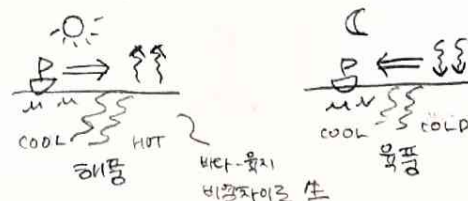 COOL HOT
해풍
바다-육지
비열차이로 生
COOL COLD
육풍